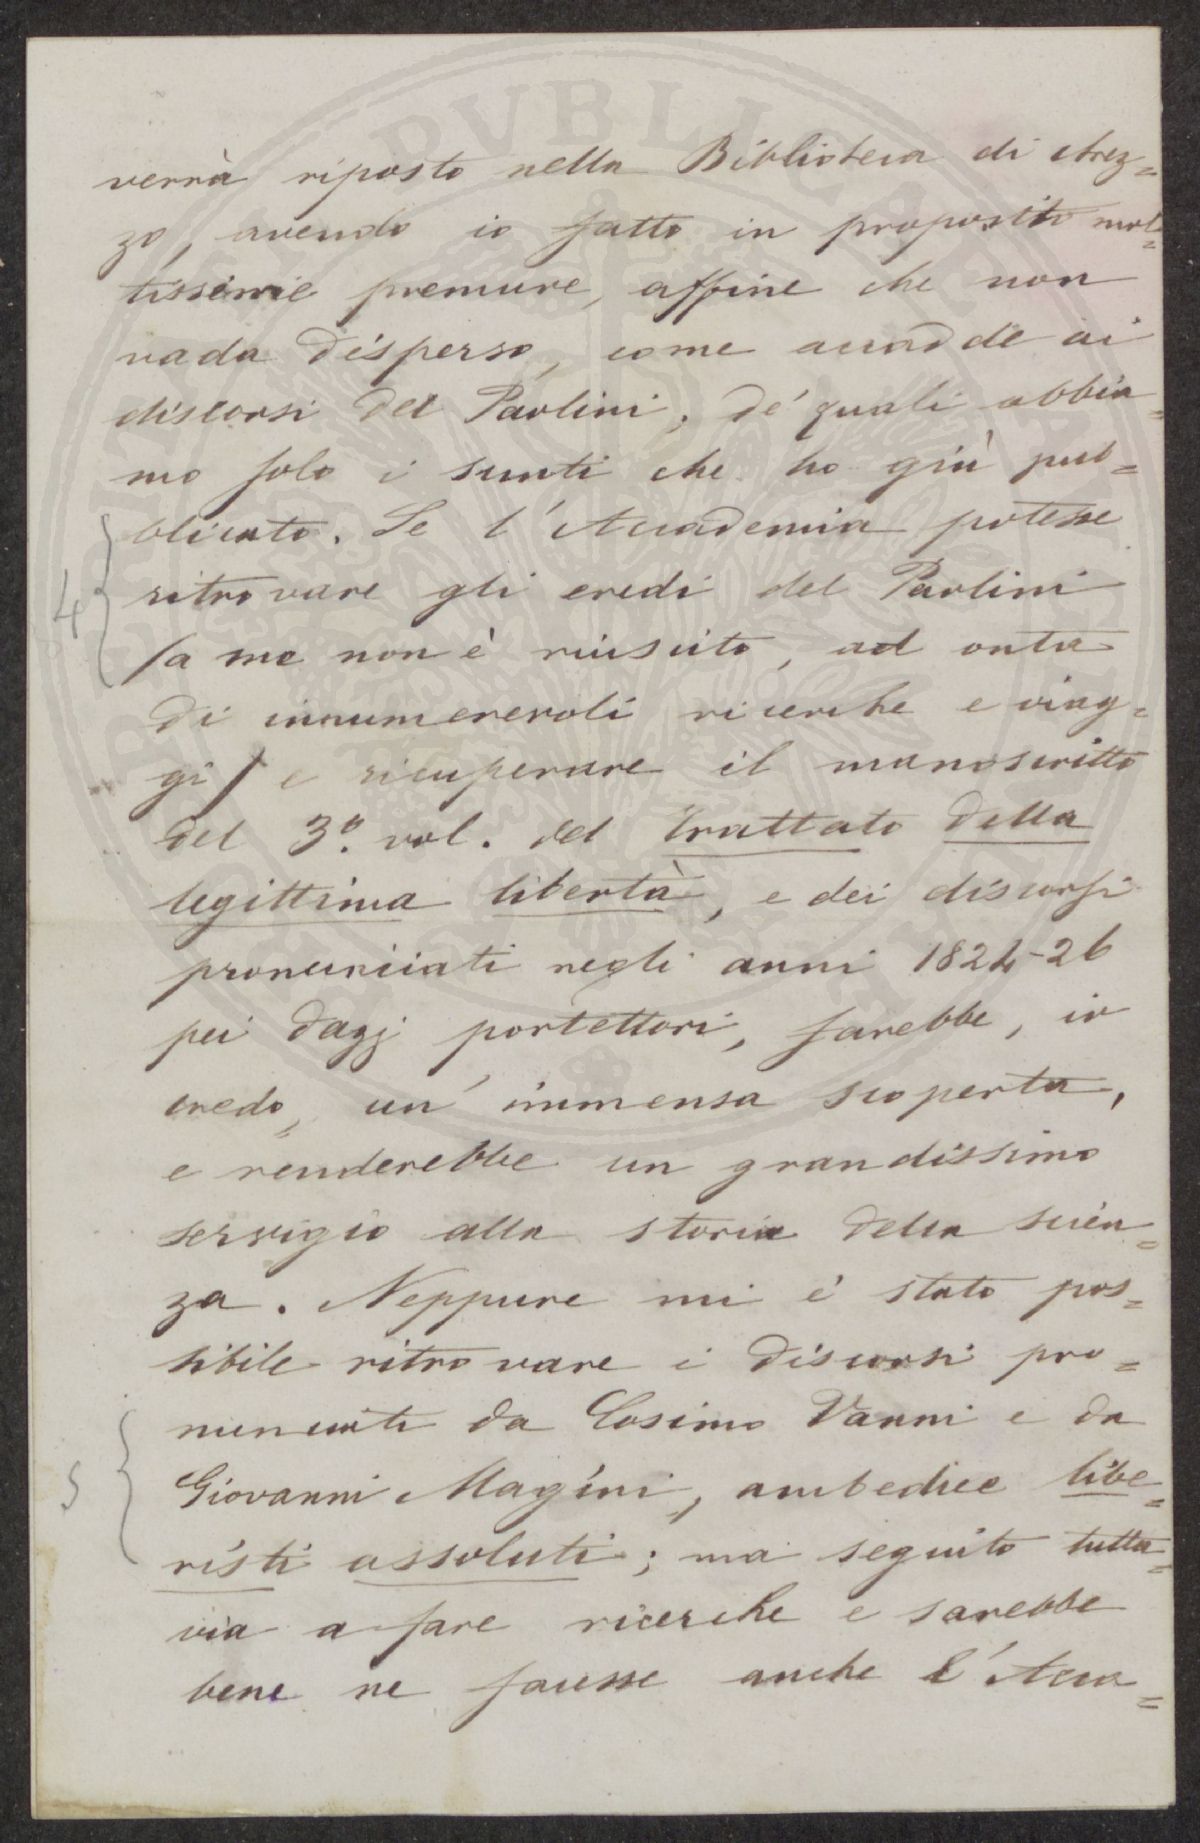 verrà riposto nella Biblioteca di Arez=
zo, avendo io fatto in proposito mol=
tissime premure, affine che non
vada disperso, come accadde ai
discorsi del Paolini, de' quali abbia=
mo solo i sunti che ho già pub=
blicato. Se l'Accademia potesse
ritrovare gli eredi del Paolini
(a me non è riuscito, ad onta
di innumerevoli ricerche e viag=
gi) e ricuperare il manoscritto
del 3.º vol. del Trattato della
legittima libertà, e dei discorsi
pronunciati negli anni 1824-26
pei dazj portettori, farebbe, io
credo, un' immensa scoperta,
e renderebbe un grandissimo
servigio alla storia della scien=
za. Neppure mi è stato pos=
sibile ritrovare i discorsi pro=
nunciati da Cosimo Vanni e da
Giovanni Magini, ambedue libe=
risti assoluti; ma seguito tutta=
via a fare ricerche e sarebbe
bene ne facesse anche l'Acca=
4
5
PVBLICAE